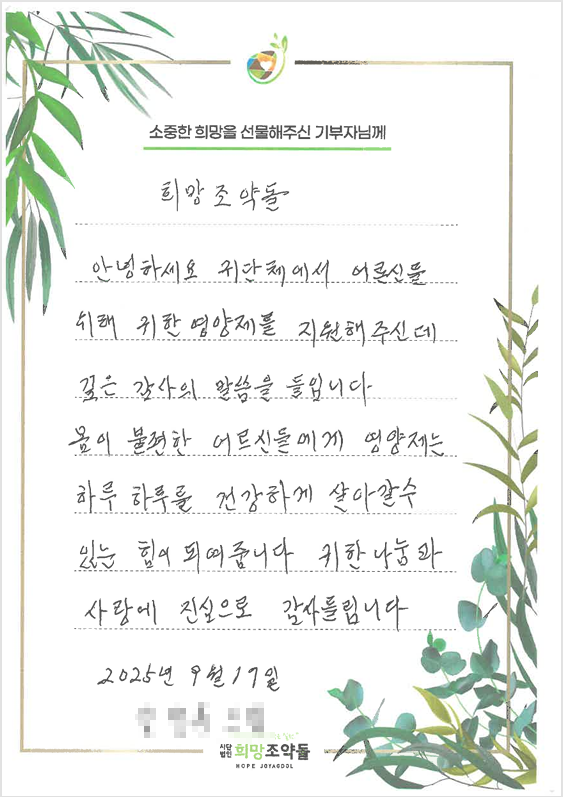 소중한 희망을 선물해주신 기부자님께
희망조약돌
안녕하세요 귀단체에서 어르신들
위해 귀한 영양제를 지원해주신데
깊은 감사의 말씀을 들입니다
몸이 불편한 어르신들에게 영양제는
하루 하루를 건강하게 살아갈수
있는 힘이 되여줍니다 귀한나눔과
사랑에 진심으로 감사틀립니다
2025년 9월 17일
사단법인 희망조약돌
HOPE JOYAGDOL